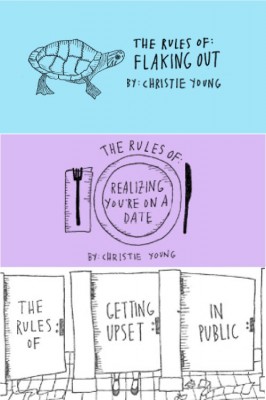 THE RULES OF:
FLAKING OUT
BY: CHRISTIE YOUNG
THE RULES OF:
REALIZING
YOU'RE ON A
DATE
BY: CHRISTIE YOUNG
THE
RULES
OF
GETTING
UPSET
IN
PUBLIC